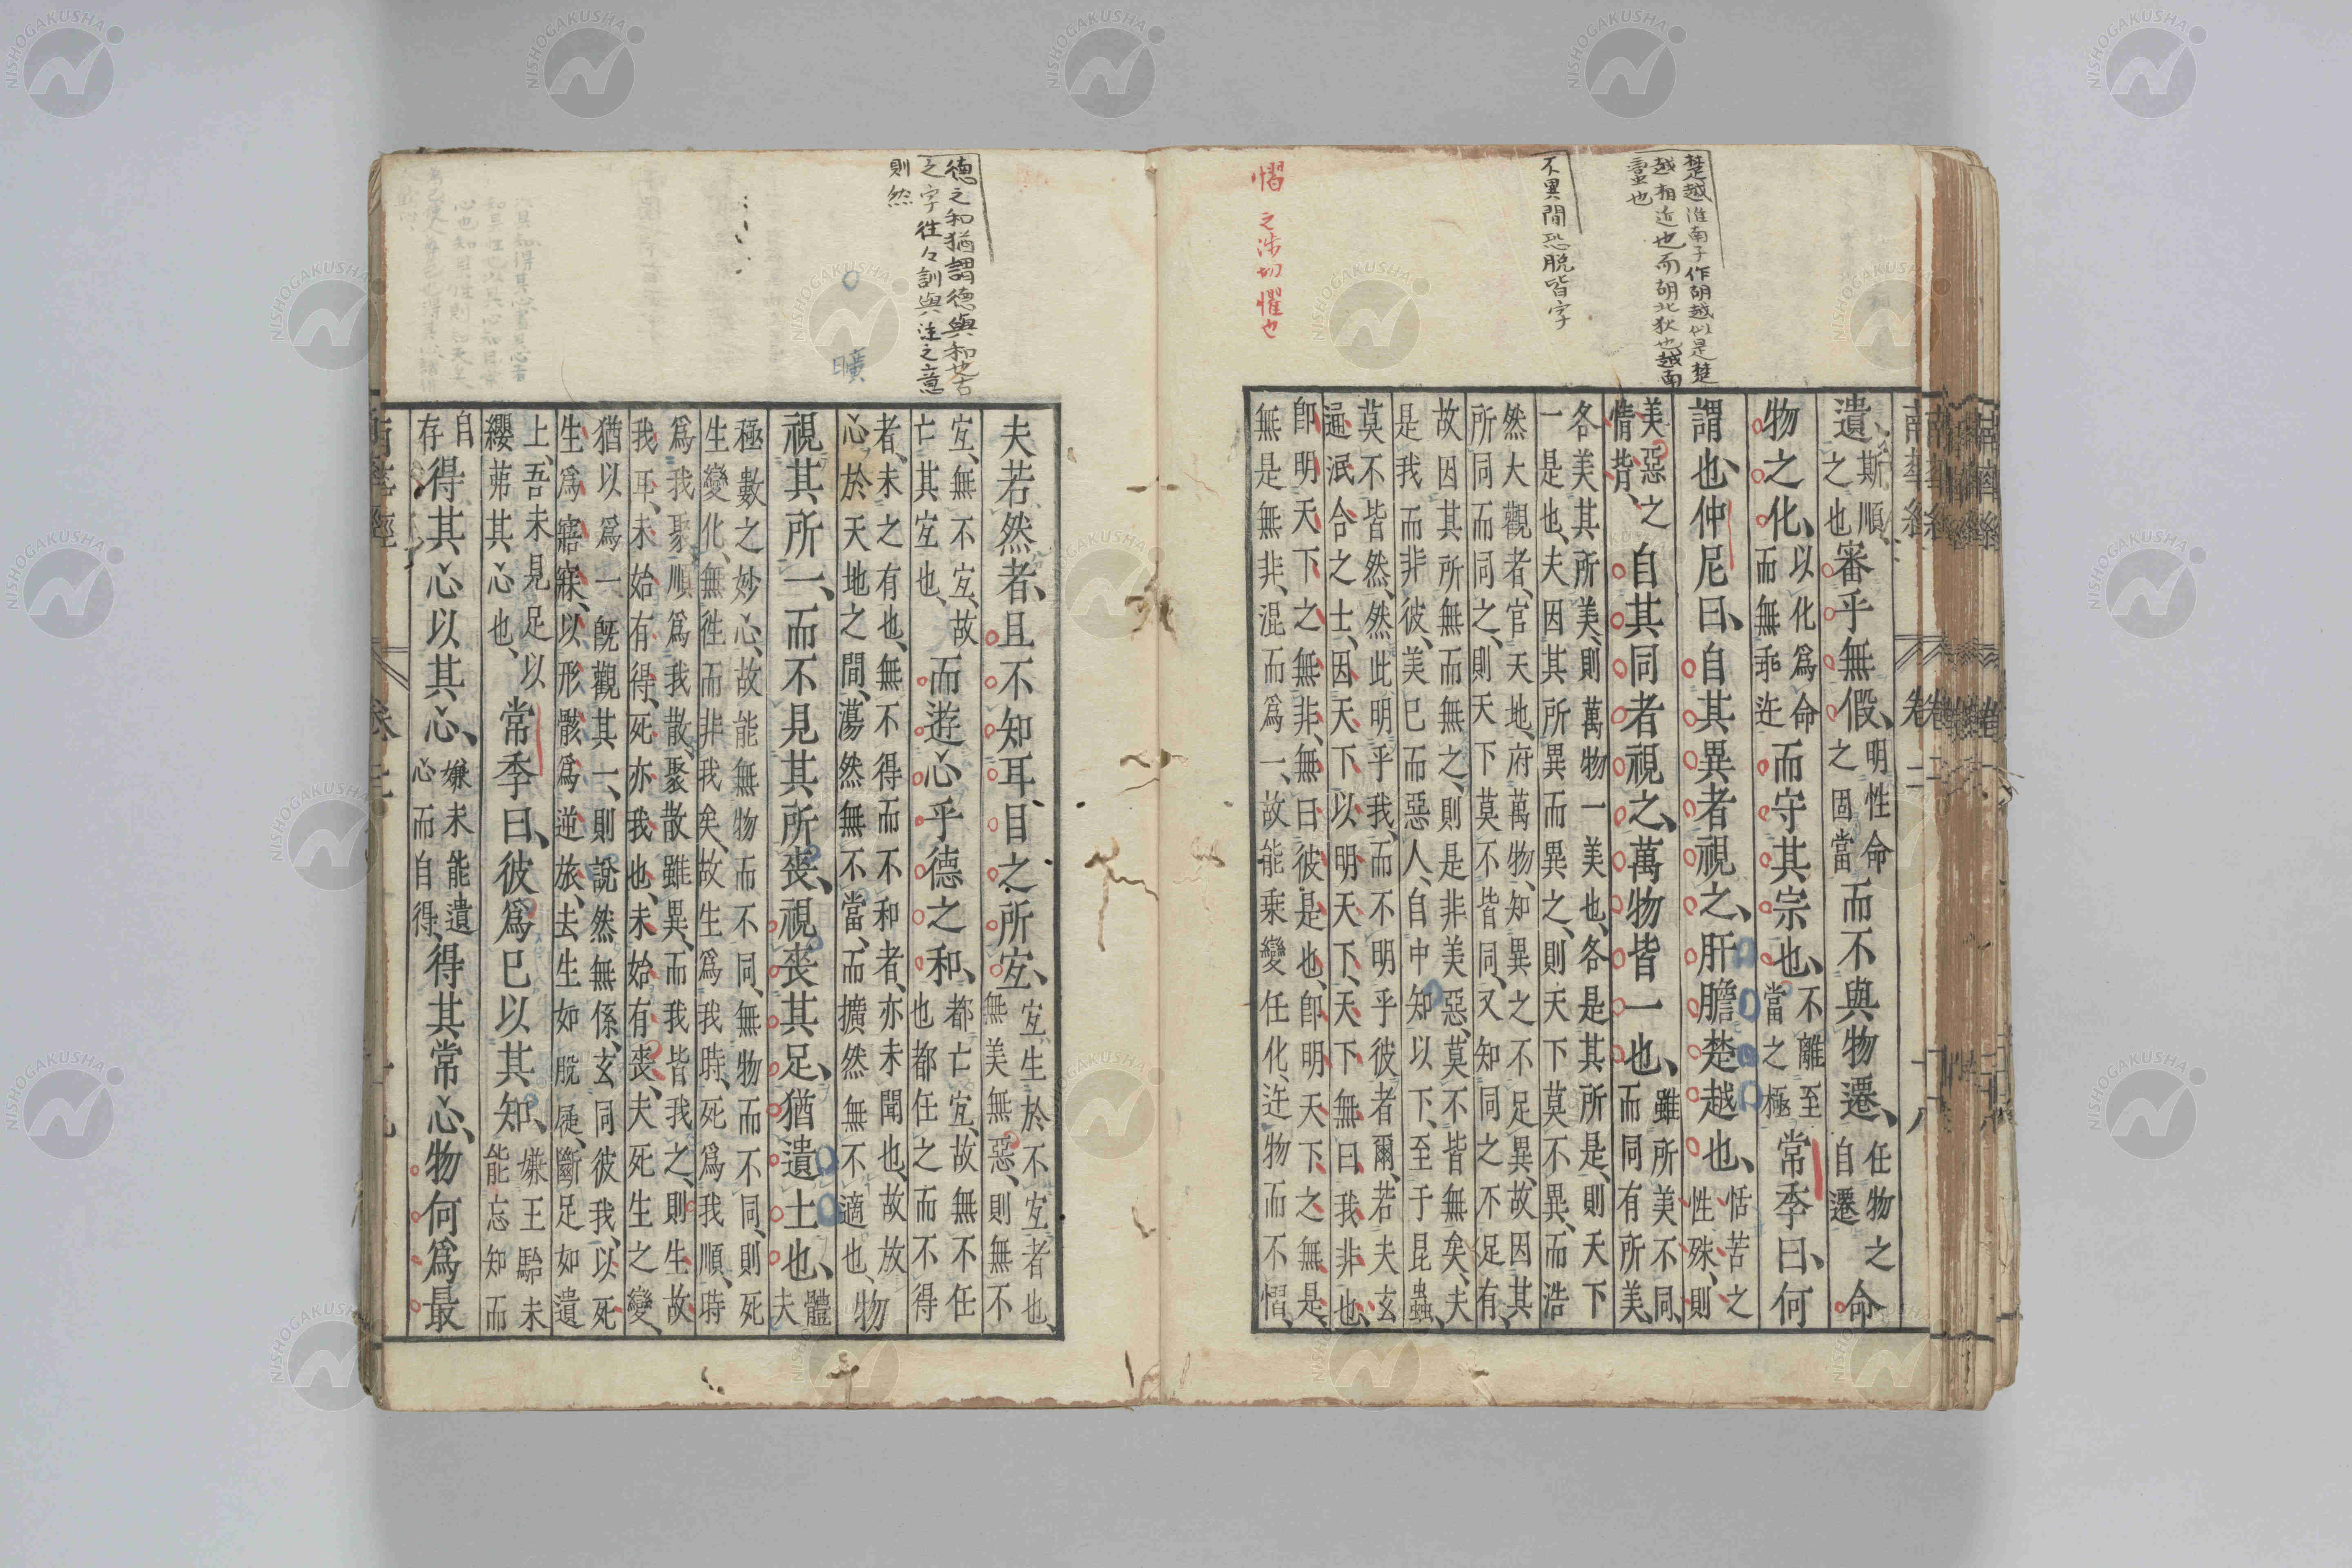 楚越淮南子作胡越似是楚
越相近也而胡北狄也越南
蠻也
不異間恐脫皆字
慴 之涉切懼也
遺、斯順之也審乎無假、明性命之固當而不與物遷、任物之自遷命
物之化、以化爲命而無乖迕而守其宗也、不離至當之極常季曰、何
謂也、仲尼曰、自其異者視之、肝膽楚越也、恬苦之性殊、則
美惡之情背、自其同者視之、萬物皆一也、雖所美不同、而同有所美、
各美其所美、則萬物一美也、各是其所是、則天下
一是也、夫因其所異而異之、則天下莫不異、而浩
然大觀者、官天地、府萬物、知異之不足異、故因其
所同而同之、則天下莫不皆同、又知同之不足有、
故因其所無而無之、則是非美惡、莫不皆無矣、夫
是我而非彼、美已而惡人、自中知以下、至于昆蟲、
莫不皆然、然此明乎我、而不明乎彼者爾、若夫玄
通泯合之士、因天下以明天下、天下無曰我非也、
即明天下之無非、無曰彼是也、即明天下之無是、
無是無非、混而爲一、故能乘變任化、迕物而不慴、
德之和猶謂德與和也古
之字往々訓與注之意
則然
曠
夫若然者、且不知耳目之所宜、宜生於不宜者也、無美無惡、則無不
宜、無不宜、故亡其宜也、而遊心乎德之和、都亡宜、故無不任也都任之而不得
者、未之有也、無不得而不和者、亦未聞也、故放
心於天地之間、蕩然無不當、而擴然無不適也、物
視其所一、而不見其所喪、視喪其足、猶遺土也、體夫
極數之妙心、故能無物而不同、無物而不同、則死
生變化、無往而非我矣、故生爲我時、死爲我順、時
爲我聚、順爲我散、聚散雖異、而我皆我之、則生故
我耳、未始有得、死亦我也、未始有喪、夫死生之變、
猶以爲一、旣觀其一、則說然無係、玄同彼我、以死
生爲寤寐、以形骸爲逆旅、去生如脫屣、斷足如遺
土、吾未見足以纓茀其心也、常季曰、彼爲已以其知、嫌王駘未能忘知而
自存得其心以其心、嫌未能遺心而自得、得其常心、物何爲最